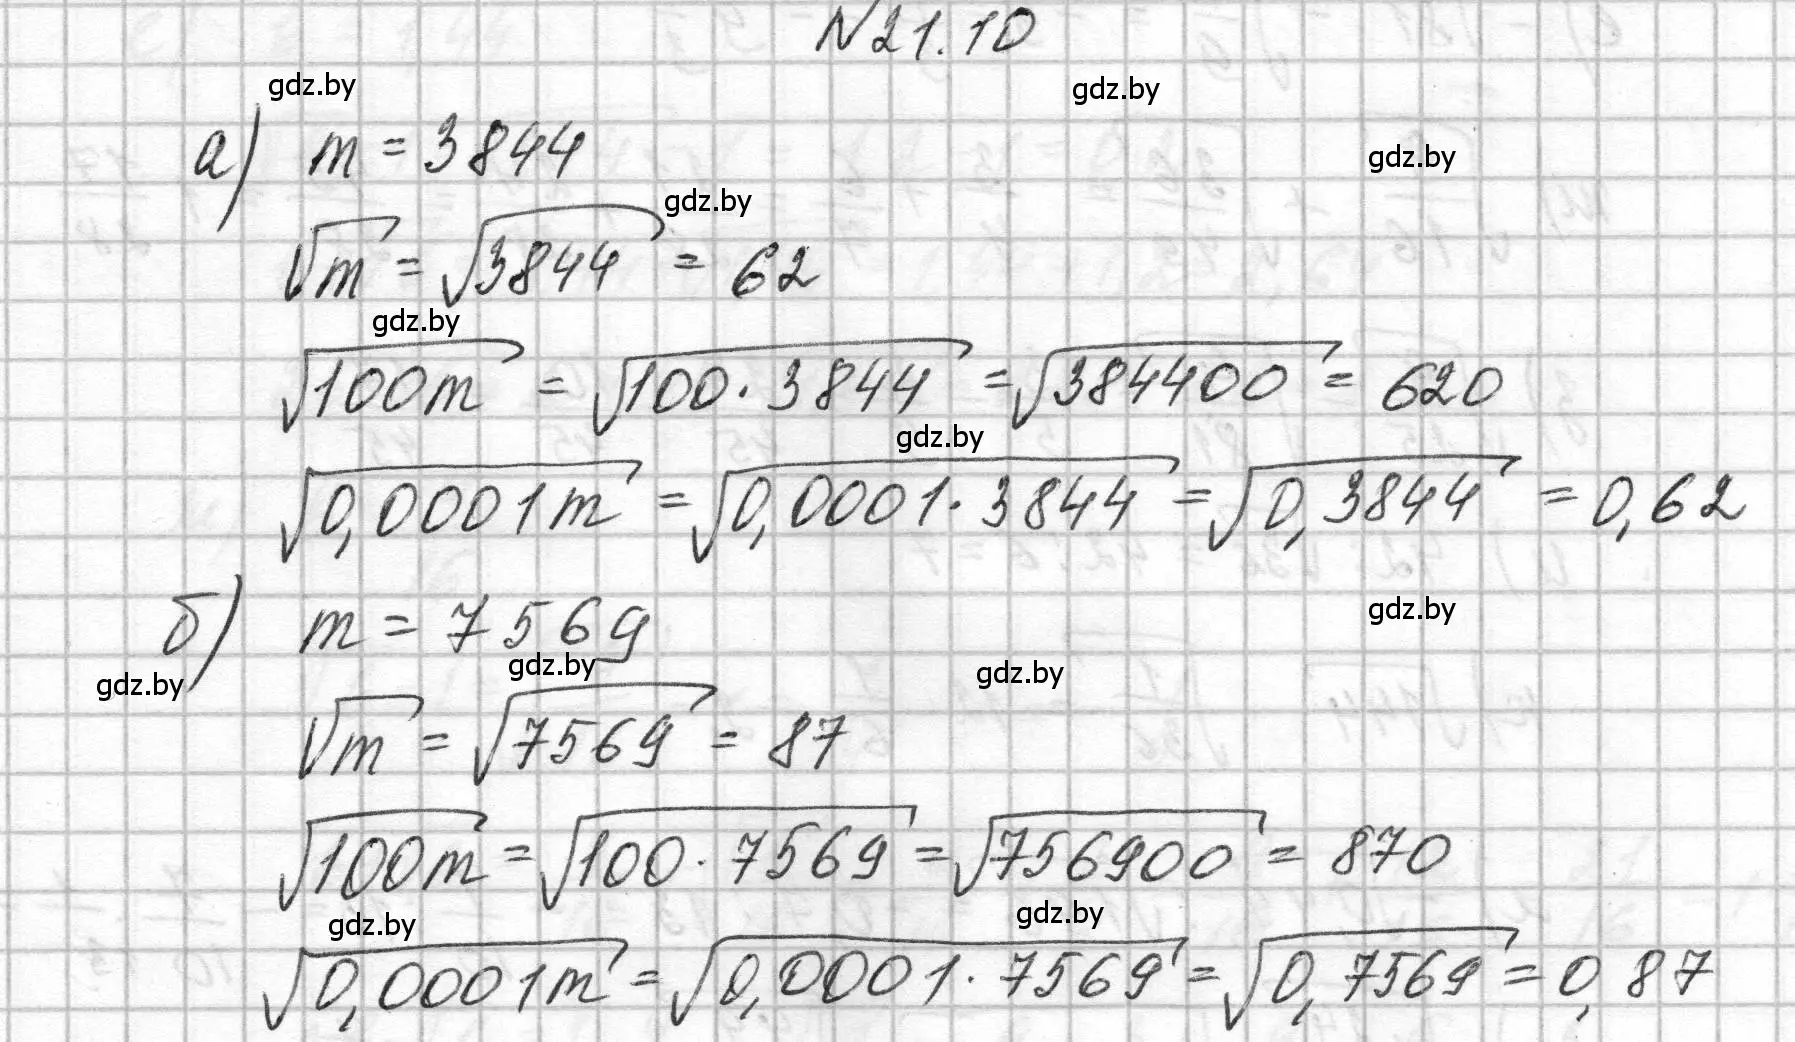 №21.10
gdz.by
gdz.by
а) m = 3844
gdz.by
gdz.by
√m = √3844 = 62
gdz.by
√100m = √100·3844 = √384400 = 620
gdz.by
√0,0001m = √0,0001·3844 = √0,3844 = 0,62
б) m = 7569
gdz.by
gdz.by
gdz.by
gdz.by
√m = √7569 = 87
√100m = √100·7569 = √756900 = 870
gdz.by
gdz.by
√0,0001m = √0,0001·7569 = √0,7569 = 0,87